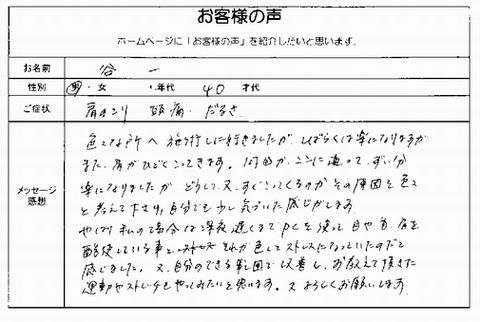 お客様の声
ホームページに「お客様の声」を紹介したいと思います。
お名前 谷 一
性別 男・女 ・年代 40 才代
ご症状 肩のこり 頭痛・だるさ
メッセージ 感想
色々な所へ施術しに行きましたが、しばらくは楽になりますが
また、肩がひどくこってきます。1ヶ月か、ここに通って、ずい分
楽になりましたが どうして、又、すぐこってくるのか その原因を色々
と考えて下さり、自分でも少し気づいた感じがします。
やはり私の場合は深夜遅くまでPCを使って目や首、肩を
酷使している事と、 それが色々ストレスになっていたのだと
感じました。又、自分のできる範囲で改善し、お教えて頂きた
運動やストレッチをやってみたいと思います。又よろしくお願いします。